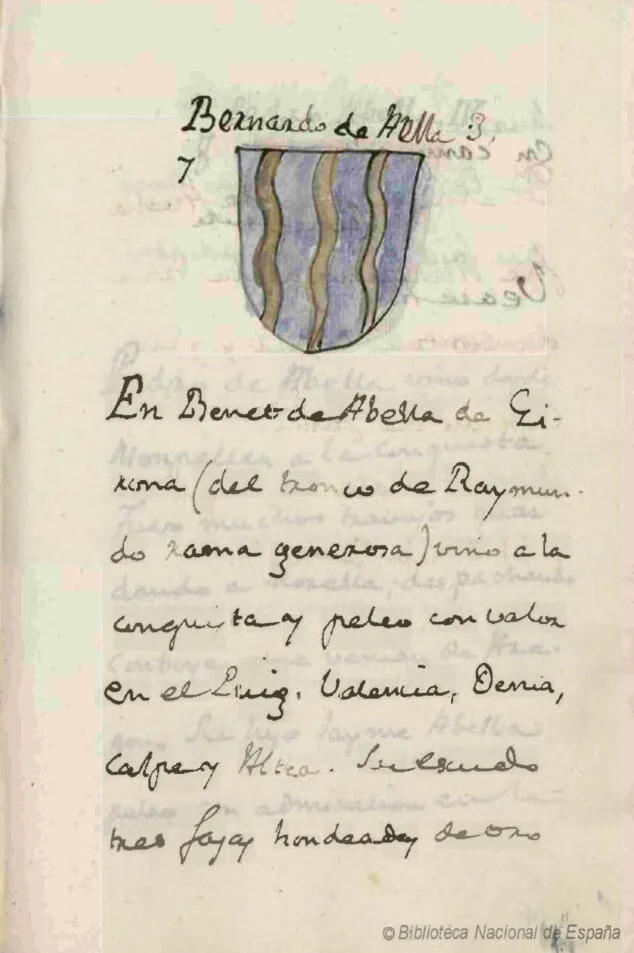 Bernardo de Abella 3,
7
En Benet de Abella de Gi-
rona (del tronco de Raymun-
do rama generosa) vino a la
conquista y peleo con valor
en el Puig. Valencia, Denia,
Calpe y Altea. Su escudo
tres fajas hondeadas de oro
© Biblioteca Nacional de España